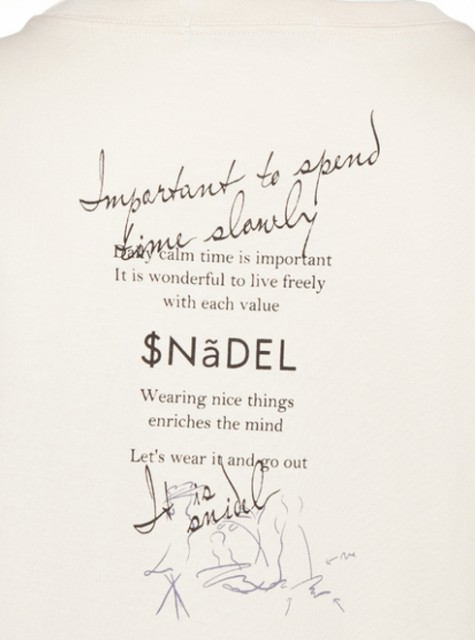 Important to spend
time slowly
Daily calm time is important
It is wonderful to live freely
with each value
$NãDEL
Wearing nice things
enriches the mind
Let's wear it and go out
It is
snidel